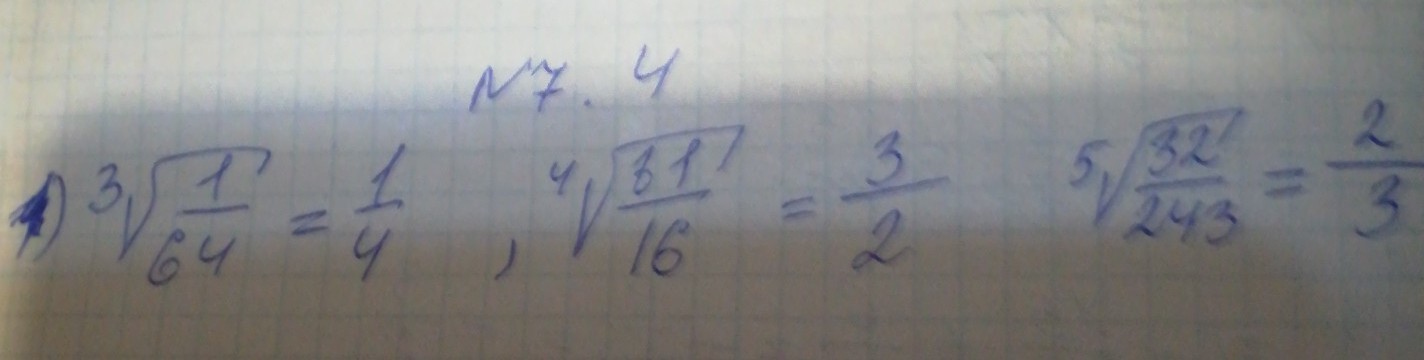 N7. 4
1) ³√(1/64) = 1/4 , ⁴√(81/16) = 3/2 ⁵√(32/243) = 2/3